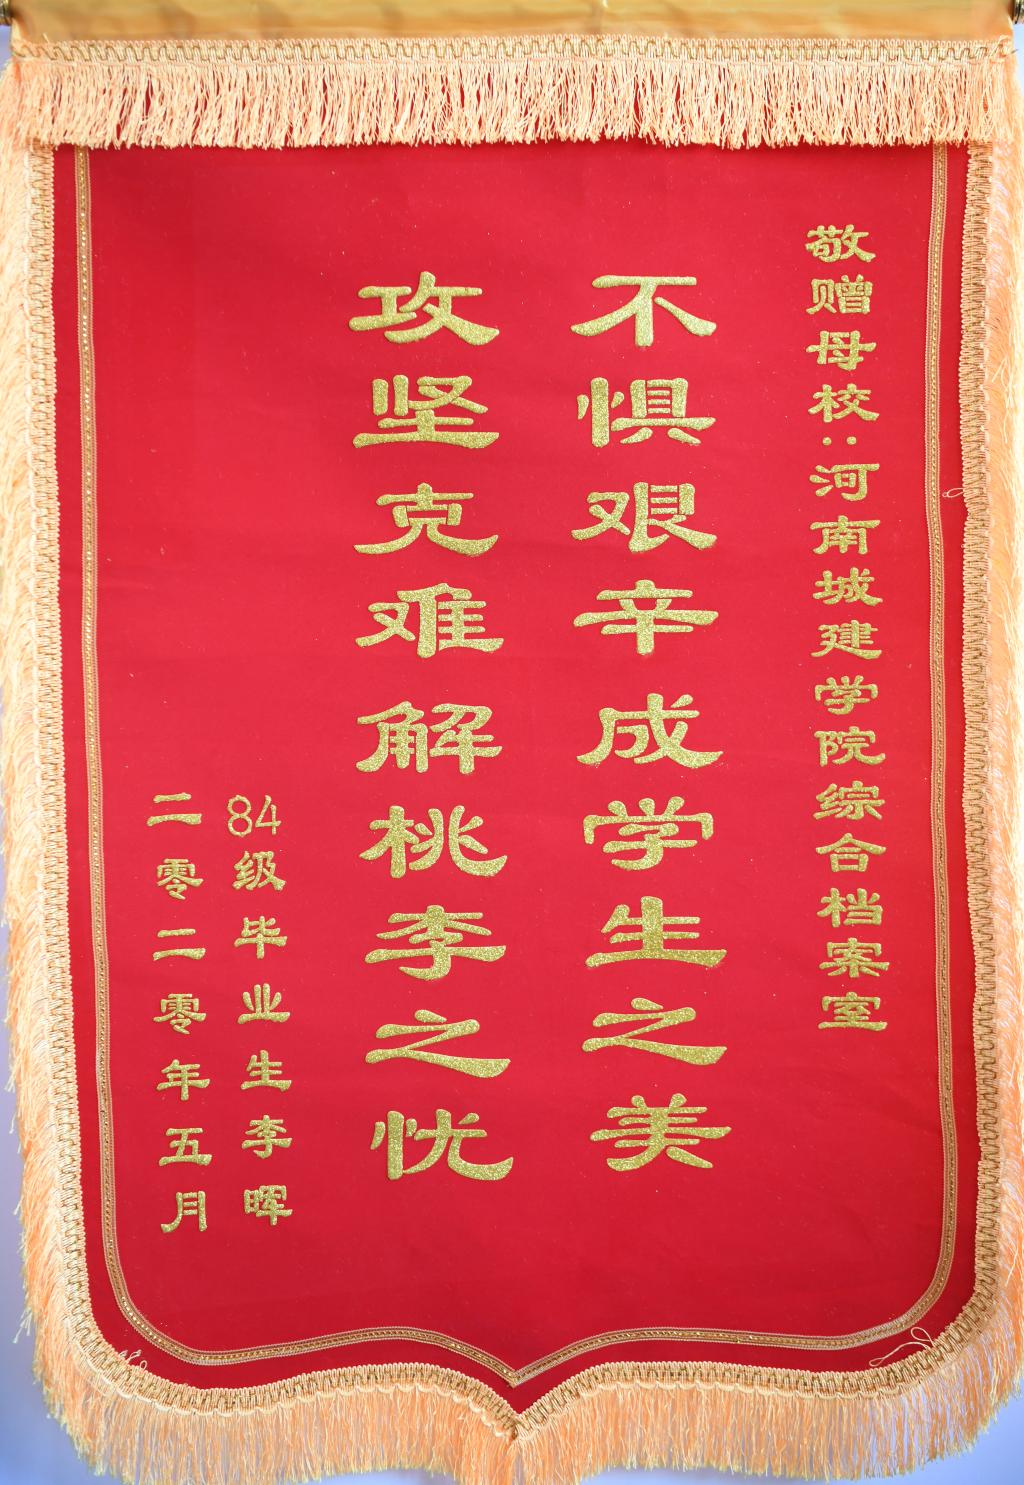 敬赠母校:河南城建学院综合档案室
不惧艰辛成学生之美
攻坚克难解桃李之忧
84级毕业生李晖
二零二零年五月